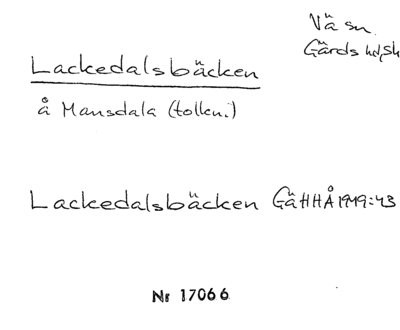 Vä sn.
Gärds hd, Sk
Lackedalsbäcken
å Mansdala (tolkn.)
Lackedalsbäcken GäHHÅ 1949:43
Nr 17066